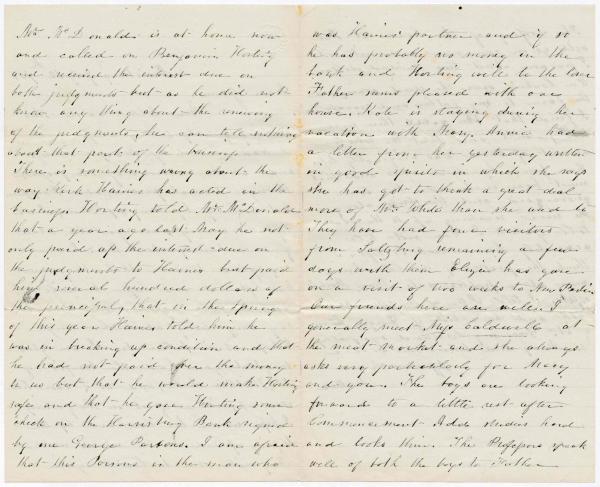 Mr. McDonald is at home now
and called on Benjamin Horting
and received the interest due on
both judgments but as he did not
know any thing about the renewing
of the judgments, he can tell nothing
about that part of the business
There is something wrong about the
way Kirk Haines has acted in the
business Horting told Mr. McDonald
that a year ago last May he not
only paid up the interest due on
the judgments to Haines but paid
him several hundred dollars of
the principal, that in the Spring
of this year Haines told him he
was in breaking up condition and that
he had not paid over the money
to us but that he would make Horting
safe and that he gave Horting some
check on the Harrisburg Bank signed
by one George Parsons. I am afraid
that this Parsons is the man who
was Haines' partner and if so
he has probably no money in the
bank and Horting will be the loser
Father seems pleased with our
house. Kate is staying during her
vacation with Mary. Annie had
a letter from her yesterday written
in good spirits in which she says
she has got to think a great deal
more of Mr. White than she used to
They have had four visitors
from Saltzburg remaining a few
days with them Eliza has gone
on a visit of two weeks to New
Our friends here are well. I
generally meet Miss Caldwell at
the meat market and she always
asks very particularly for Mary
and you. The boys are looking
forward to a little rest after
Commencement. Add studies hard
and looks thin. The Professors speak
well of both the boys to Father